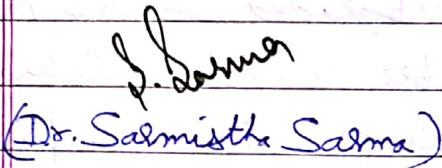 S. Sarma
(Dr. Sarmistha Sarma)